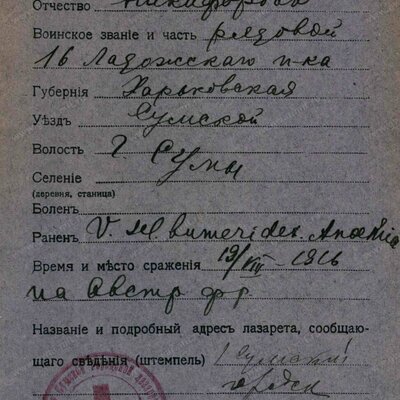 Отчество Никифоровъ
Воинское званіе и часть рядовой
16 Ладожскаго п-ка
Губернія Харьковская
Уѣздъ Сумской
Волость г Сумы
Селеніе
(деревня, станица)
Боленъ
Раненъ V scl humeri dex. Anaemia
Время и мѣсто сраженія 19/VII-1916
на Австр фр
Названіе и подробный адресъ лазарета, сообщаю-
щаго свѣдѣнія (штемпель) Сумскій